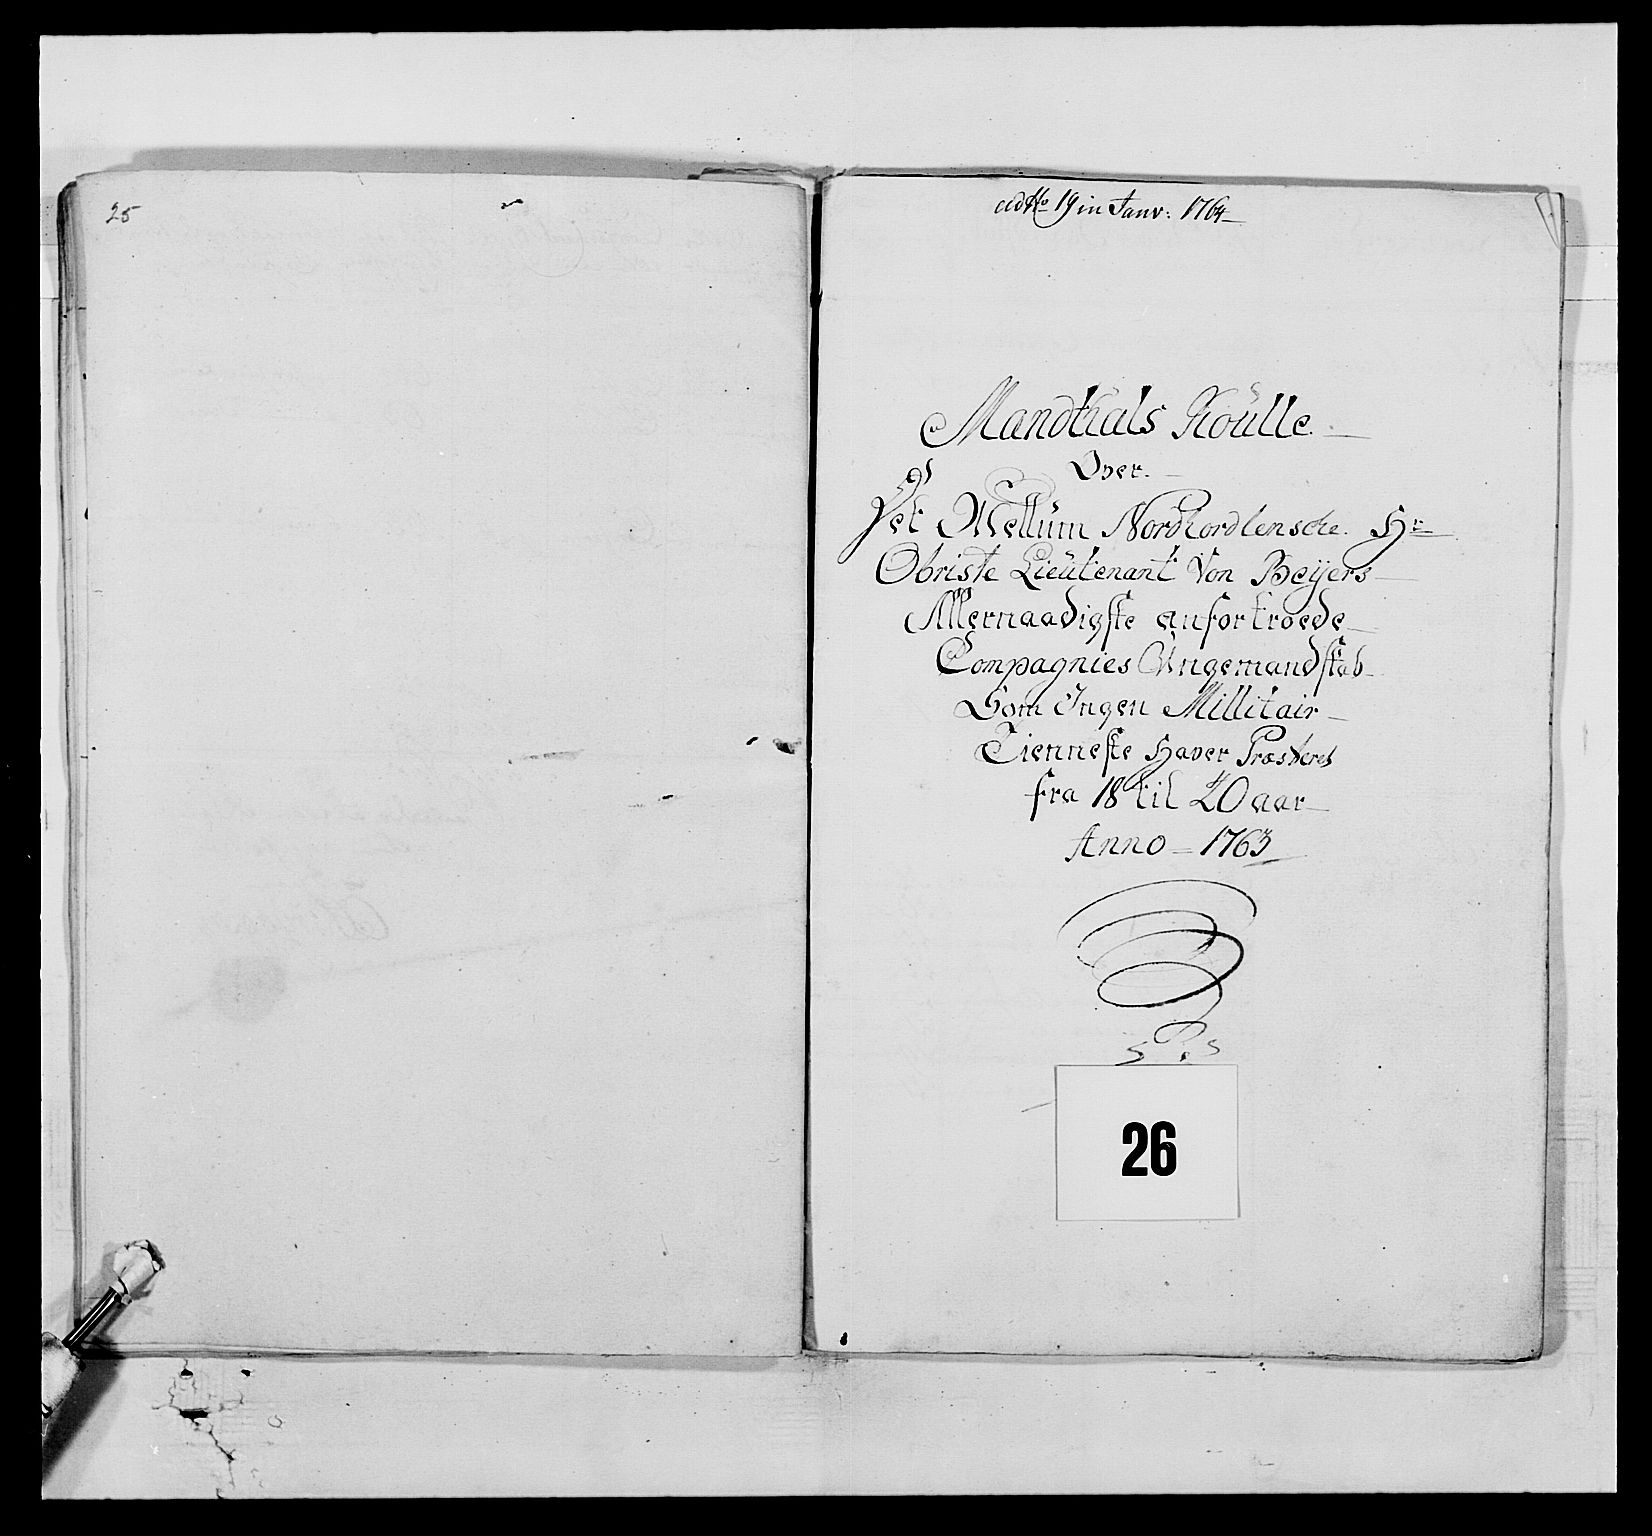 25
ad No 19 in Janv: 1764
Mandtals Roülle.
Over.
Det Mellüm Nordhordlensche. Hr
Obriste Lieütenant Von Beijers
Allernaadigste anfortroede
Compagnies Ungemandskab
Som Ingen Millitair
Tienneste Haver Præsteret
fra 18 til 20 aar
Anno 1763
26